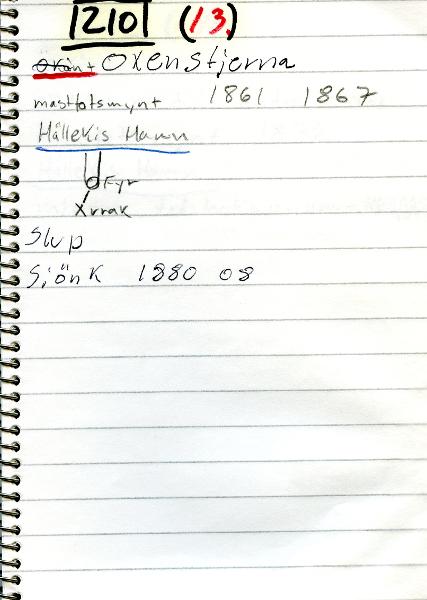 1210 (13)
Okänt Oxenstjerna
mastfotsmynt 1861 1867
Hällekis Hamn
Fyr
X vrak
Slup
Sjönk 1880 08